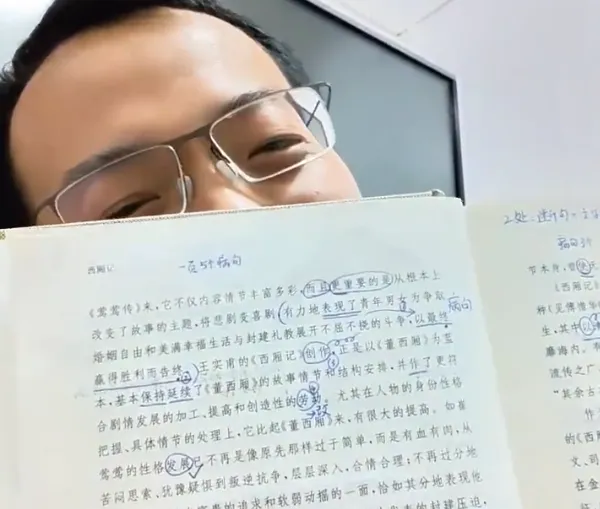 西厢记
一页5个病句
《莺莺传》来，它不仅内容情节丰富多彩，而且更重要的是从根本上
改变了故事的主题，将悲剧变喜剧，有力地表现了青年男女为争取
婚姻自由和美满幸福生活与封建礼教展开不屈不挠的斗争，以最终
病句
赢得胜利而告终。王实甫的《西厢记》创作，正是以《董西厢》为蓝
本，基本保持延续了《董西厢》的故事情节和结构安排，并作了更符
合剧情发展的加工、提高和创造性的劳动。尤其在人物的身份性格
改
把握、具体情节的处理上，它比起《董西厢》来，有很大的提高。如崔
莺莺的性格发展已不再是像原先那样过于简单，而是有血有肉，从
苦闷思索、犹豫疑惧到叛逆抗争，层层深入，合情合理；不再过分地
的追求和软弱动摇的一面，恰如其分地表现他
封建压迫，
2处
病句
节本身，曾
《西厢记》
种《见佛
生，其中以
靡海内。
流传之广
“其余古
作
的《西厢
文、司
在金